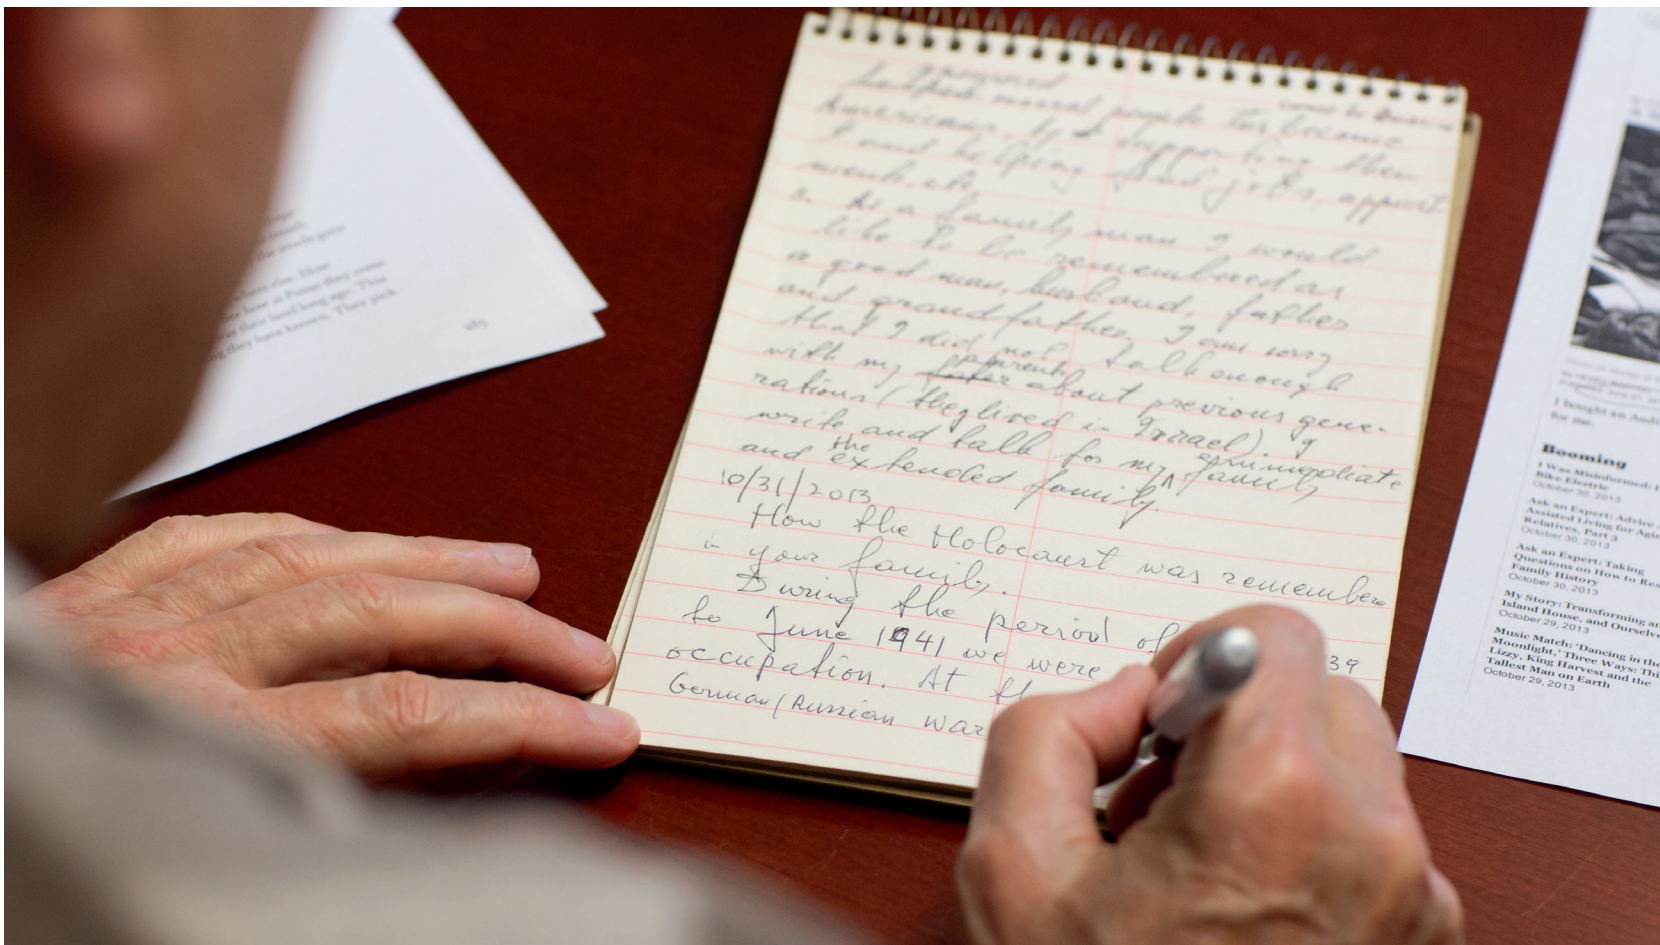 several people to become
Americans, by supporting them
and helping find jobs, apart-
ments, etc.
2. As a family man I would
like to be remembered as
a good man, husband, father
and grandfather. I am sorry
that I did not talk enough
with my parents about previous gene-
rations (they lived in Izrael). I
write and talk for my immediate family
and the extended family.
10/31/2013
How the Holocaust was remember
in your family.
During the period of 39
to June 1941 we were
occupation. At th
German/Russian war
long ago. This
they have known. They pick
185
I bought an Audi
for me.
Booming
I Was Misinformed: I
Bike Electric
October 30, 2013
Ask an Expert: Advice
Assisted Living for Agin
Relatives, Part 3
October 30, 2013
Ask an Expert: Taking
Questions on How to Res
Family History
October 30, 2013
My Story: Transforming an
Island House, and Ourselve
October 29, 2013
Music Match: 'Dancing in the
Moonlight,' Three Ways: Thi
Lizzy, King Harvest and the
Tallest Man on Earth
October 29, 2013